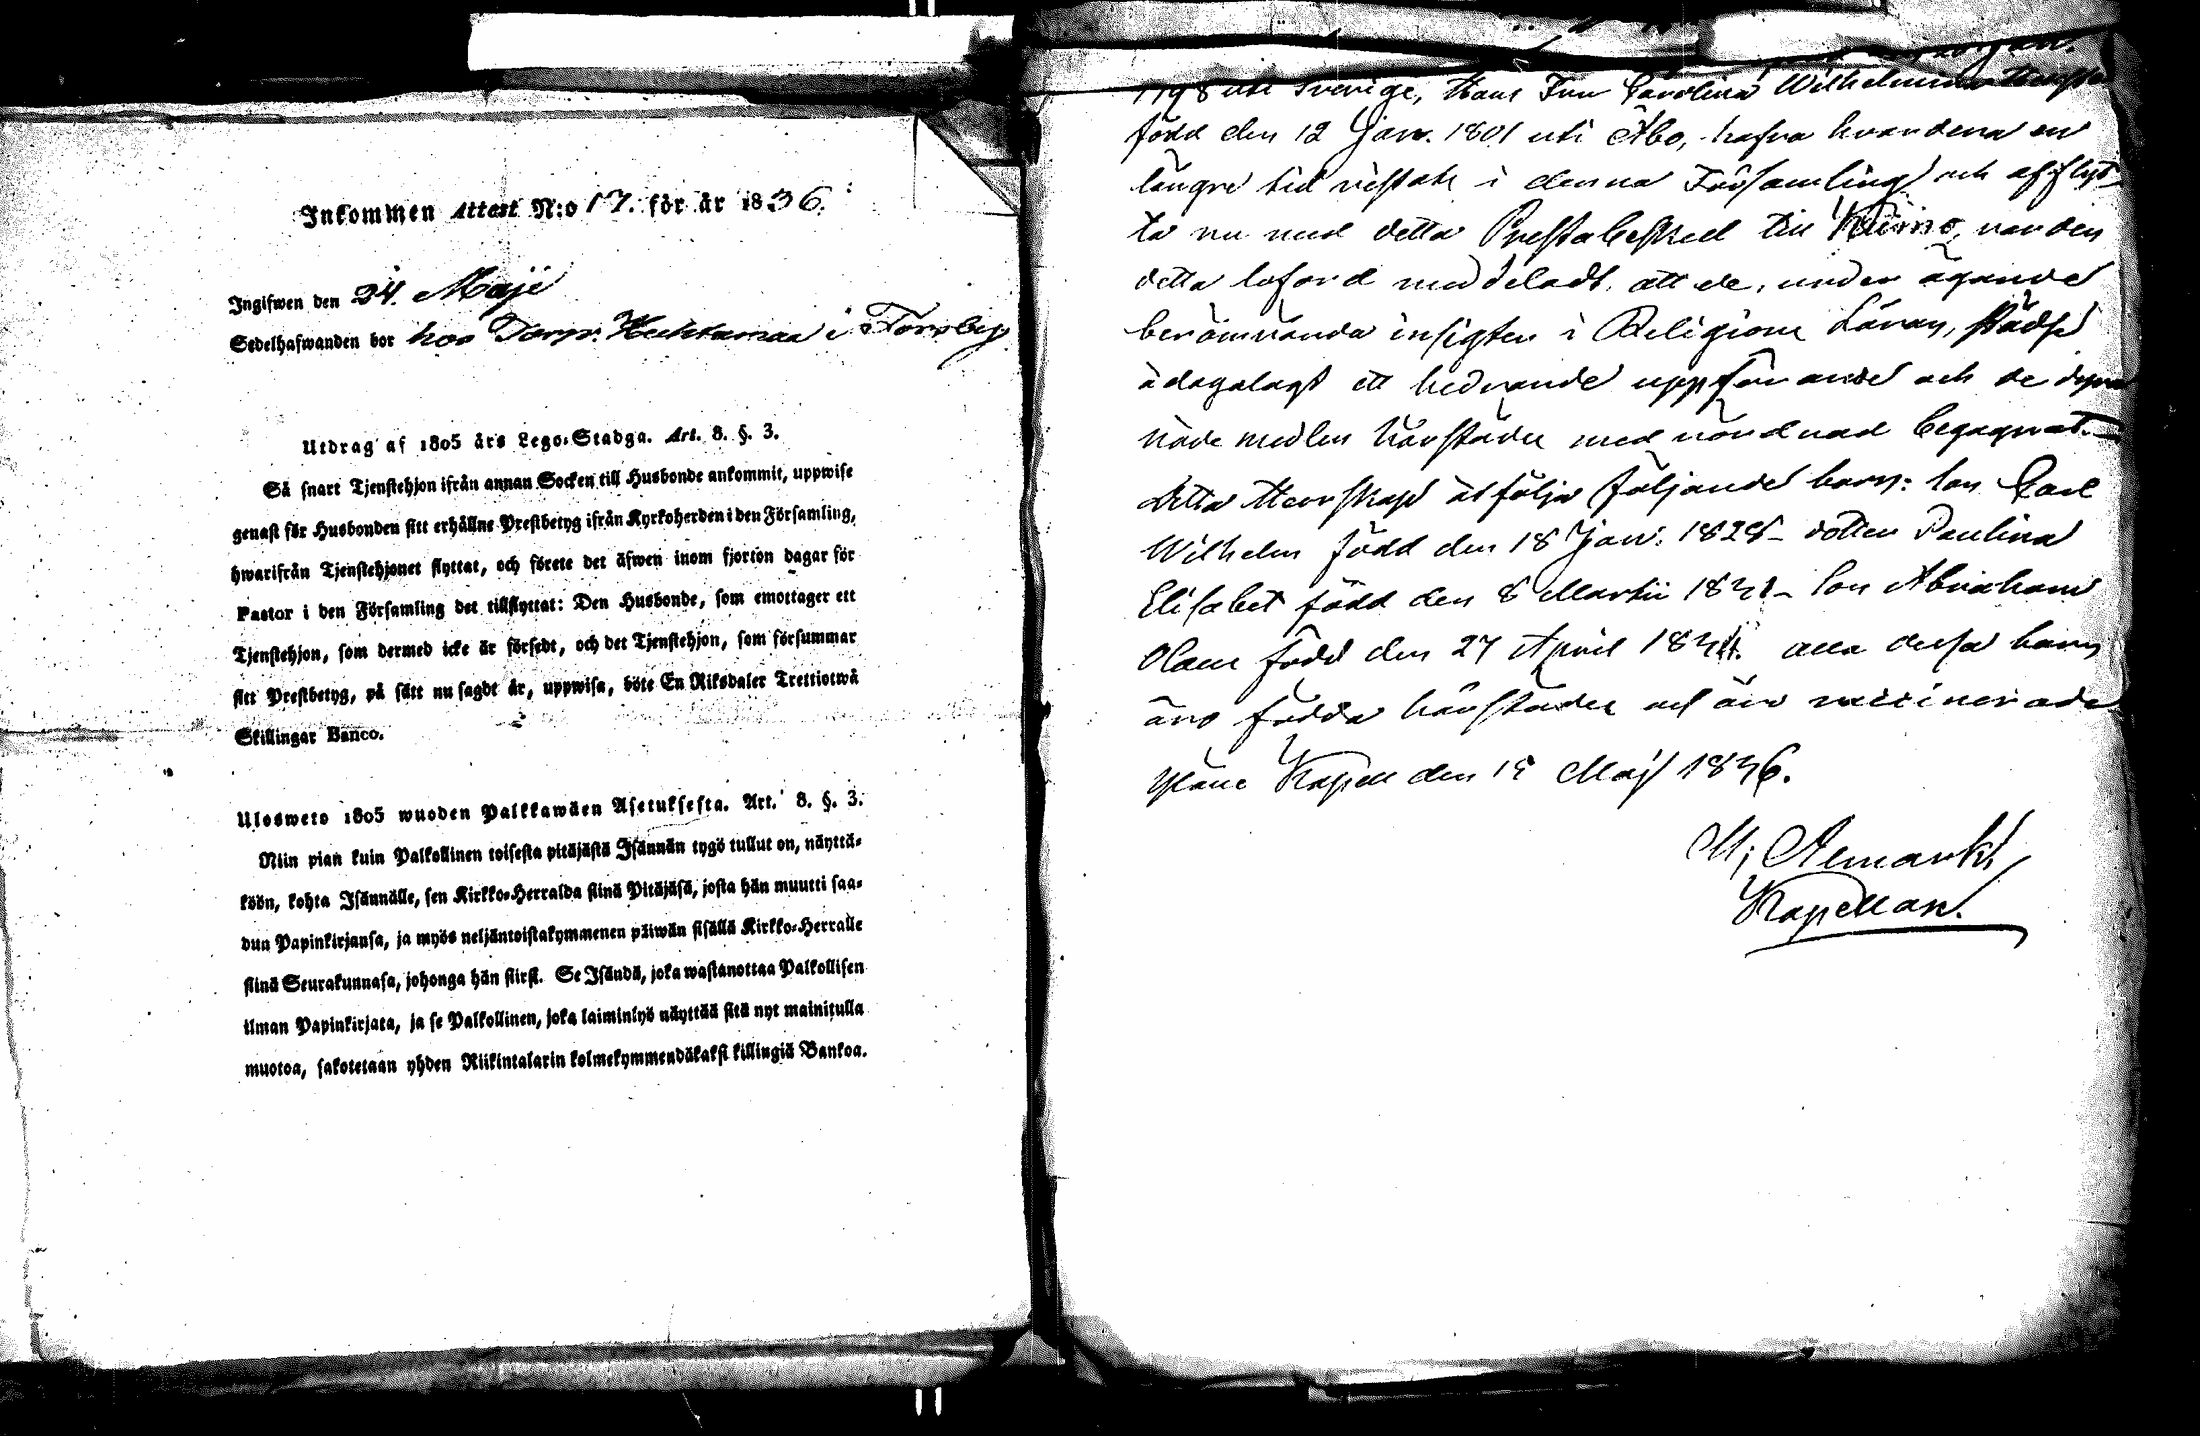 Inkommen Attest N:o 17. för år 1836.
Ingifwen den 24. Maji
Sedelhafwanden bor hos Torp. Huhtamaa i Torsby
Utdrag af 1805 års Lego-Stadga. Art. 8. §. 3.
Så snart Tjenstehjon ifrån annan Socken till Husbonde ankommit, uppwise
genast för Husbonden sitt erhållne Prestbetyg ifrån Kyrkoherden i den Församling,
hwarifrån Tjenstehjonet flyttat, och förete det äfwen inom fjorton dagar för
Pastor i den Församling det tillflyttat: Den Husbonde, som emottager ett
Tjenstehjon, som dermed icke är försedt, och det Tjenstehjon, som försummar
sitt Prestbetyg, på sätt nu sagdt är, uppwisa, böte En Riksdaler Trettiotwå
Skillingar Banco.
Ulosweto 1805 wuoden Palkkawäen Asetuksesta. Art. 8. §. 3.
Niin pian kuin Palkollinen toisesta pitäjästä Isännän tygö tullut on, näyttä-
köön, kohta Isännälle, sen Kirkko-Herralda siinä Pitäjäsä, josta hän muutti saa-
dun Papinkirjansa, ja myös neljäntoistakymmenen päiwän sisällä Kirkko-Herralle
siinä Seurakunnasa, johonga hän siirsi. Se Isändä, joka wastanottaa Palkollisen
ilman Papinkirjata, ja se Palkollinen, joka laiminlyö näyttää sitä nyt mainitulla
muotoa, sakotetaan yhden Riikintalarin kolmekymmendäkaksi killingiä Bankoa.
1798 uti Sverige, Hans Fru Carolina Wilhelmina
född den 12 Jan. 1801 uti Åbo, hafva hvardera en
längre tid vistats i denna Församling och afflyt-
ta nu med detta Prestabesked till Kimito, varden
detta loford meddeladt, att de, under ägande
berömvärda insigter i Religions Läran, städse
ådagalagt ett hedrande uppförande och de dyra
nådemedlen härstädes med vördnad begagnat.
Detta Herrskap åtfölja följande barn: son Carl
Wilhelm född den 18 Jan. 1828 - dotter Paulina
Elisabet född den 8 Martii 1831 - son Abraham
Olaus född den 27 April 1834. alla dessa barn
äro födda härstädes och äro vaccinerade
Yläne Kapell den 15 Maj 1836.
M; Aemarkl
Kapellan.